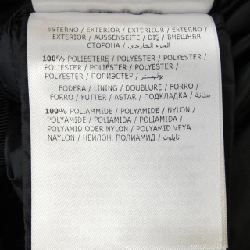 ESTERNO / EXTERIOR / EXTERIEUR / EXTERNO
/ EXTERIOR / AUSSENSEITE / DIŞ / ВНЕШНЯЯ
СТОРОНА / الجزء الخارجي
100% POLIESTERE / POLYESTER / POLYESTER /
POLIESTER / POLIESTER / POLYESTER /
POLYESTER / ПОЛИЭСТЕР / بوليستر
FODERA / LINING / DOUBLURE / FORRO /
FORRO / FUTTER / ASTAR / ПОДКЛАДКА / بطانة
100% POLIAMMIDE / POLYAMIDE / NYLON /
POLYAMIDE / POLIAMIDA / POLIAMIDA /
POLYAMID ODER NYLON / POLYAMID VEYA
NAYLON / НЕЙЛОН, ПОЛИАМИД / نايلون